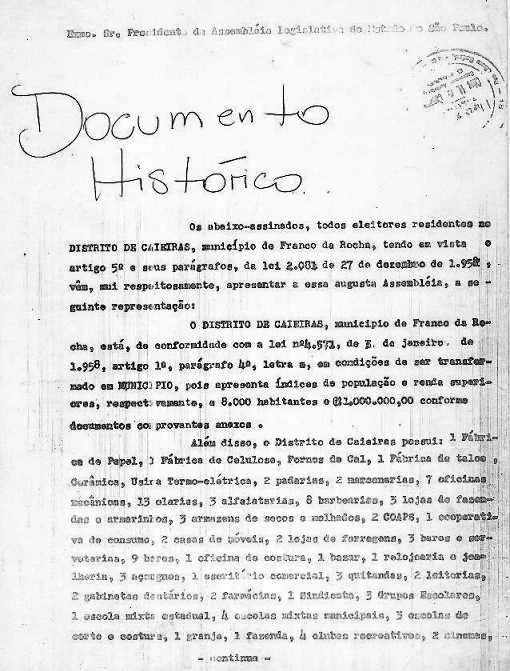 Exmo. Sr. Presidente da Assembléia Legislativa do Estado de São Paulo.
Documento
Histórico
Os abaixo-assinados, todos eleitores residentes no
DISTRITO DE CAIEIRAS, município de Franco da Rocha, tendo em vista o
artigo 5º e seus parágrafos, da lei 2.081 de 27 de dezembro de 1.952,
vêm, mui respeitosamente, apresentar a essa augusta Assembléia, a se-
guinte representação:
O DISTRITO DE CAIEIRAS, município de Franco da Ro-
cha, está, de conformidade com a lei nº4.571, de de janeiro de
1.958, artigo 1º, parágrafo 4º, letra a, em condições de ser transfor-
mado em MUNICIPIO, pois apresenta índices de população e renda superi-
ores, respectivamente, a 8.000 habitantes e ₢1.000.000,00 conforme
documentos comprovantes anexos .
Além disso, o Distrito de Caieiras possui: 1 Fábri-
ca de Papel, 1 Fábrica de Celulose, Fornos de Cal, 1 Fábrica de talco,
Cerâmica, Usina Termo-elétrica, 2 padarias, 2 marcenarias, 7 oficinas
mecânicas, 13 olarias, 3 alfaiatarias, 8 barbearias, 3 lojas de fazen-
das e armarinhos, 3 armazens de secos e molhados, 2 COAPS, 1 cooperati-
va de consumo, 2 casas de móveis, 2 lojas de ferragens, 3 bares e sor-
veterias, 9 bares, 1 oficina de costura, 1 bazar, 1 relojoaria e joa-
lheria, 3 açougues, 1 escritório comercial, 3 quitandas, 2 leitorias,
2 gabinetes dentários, 2 farmácias, 1 Sindicato, 3 Grupos Escolares,
1 escola mixta estadual, 4 escolas mixtas municipais, 3 escolas de
corte e costura, 1 granja, 1 fazenda, 4 clubes recreativos, 2 cinemas,
- continua -